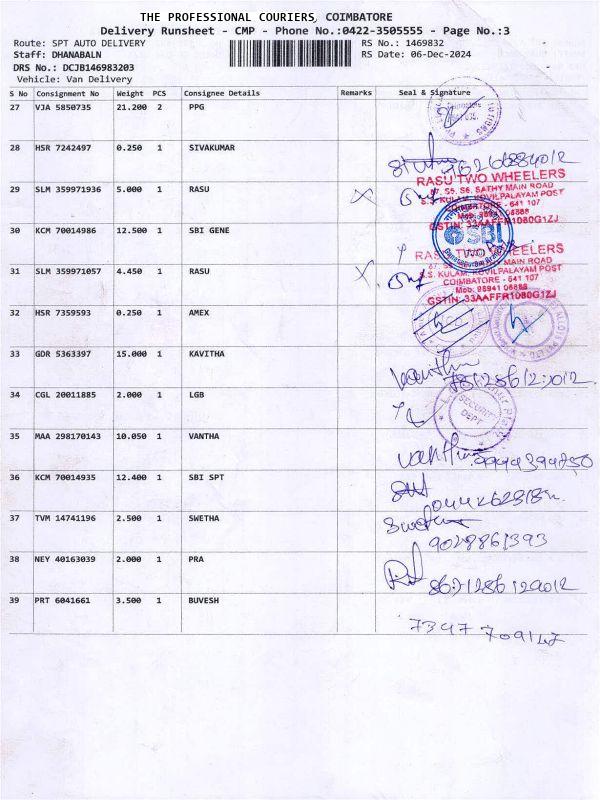 THE PROFESSIONAL COURIERS, COIMBATORE
Delivery Runsheet - CMP - Phone No.:0422-3505555 - Page No.:3
Route: SPT AUTO DELIVERY RS No.: 1469832
Staff: DHANABALN RS Date: 06-Dec-2024
DRS No.: DCJB146983203
Vehicle: Van Delivery
S No Consignment No Weight PCS Consignee Details Remarks Seal & Signature
27 VJA 5850735 21.200 2 PPG
28 HSR 7242497 0.250 1 SIVAKUMAR
RASU TWO WHEELERS
29 SLM 359971936 5.000 1 RASU
87, S5, S6, SATHY MAIN ROAD
S.S. KULAM, KOVILPALAYAM POST
COIMBATORE - 641 107
GSTIN: 33AAFFR1080G1ZJ
30 KCM 70014986 12.500 1 SBI GENE
SBI
RASU TWO WHEELERS
31 SLM 359971057 4.450 1 RASU
S.S. KULAM, KOVILPALAYAM POST
COIMBATORE - 641 107
Mob: 98941 06888
GSTIN: 33AAFFR1080G1ZJ
32 HSR 7359593 0.250 1 AMEX
33 GDR 5363397 15.000 1 KAVITHA
34 CGL 20011885 2.000 1 LGB
SECURITY
DEPT
35 MAA 298170143 10.050 1 VANTHA
36 KCM 70014935 12.400 1 SBI SPT
37 TVM 14741196 2.500 1 SWETHA
9028861393
38 NEY 40163039 2.000 1 PRA
39 PRT 6041661 3.500 1 BUVESH